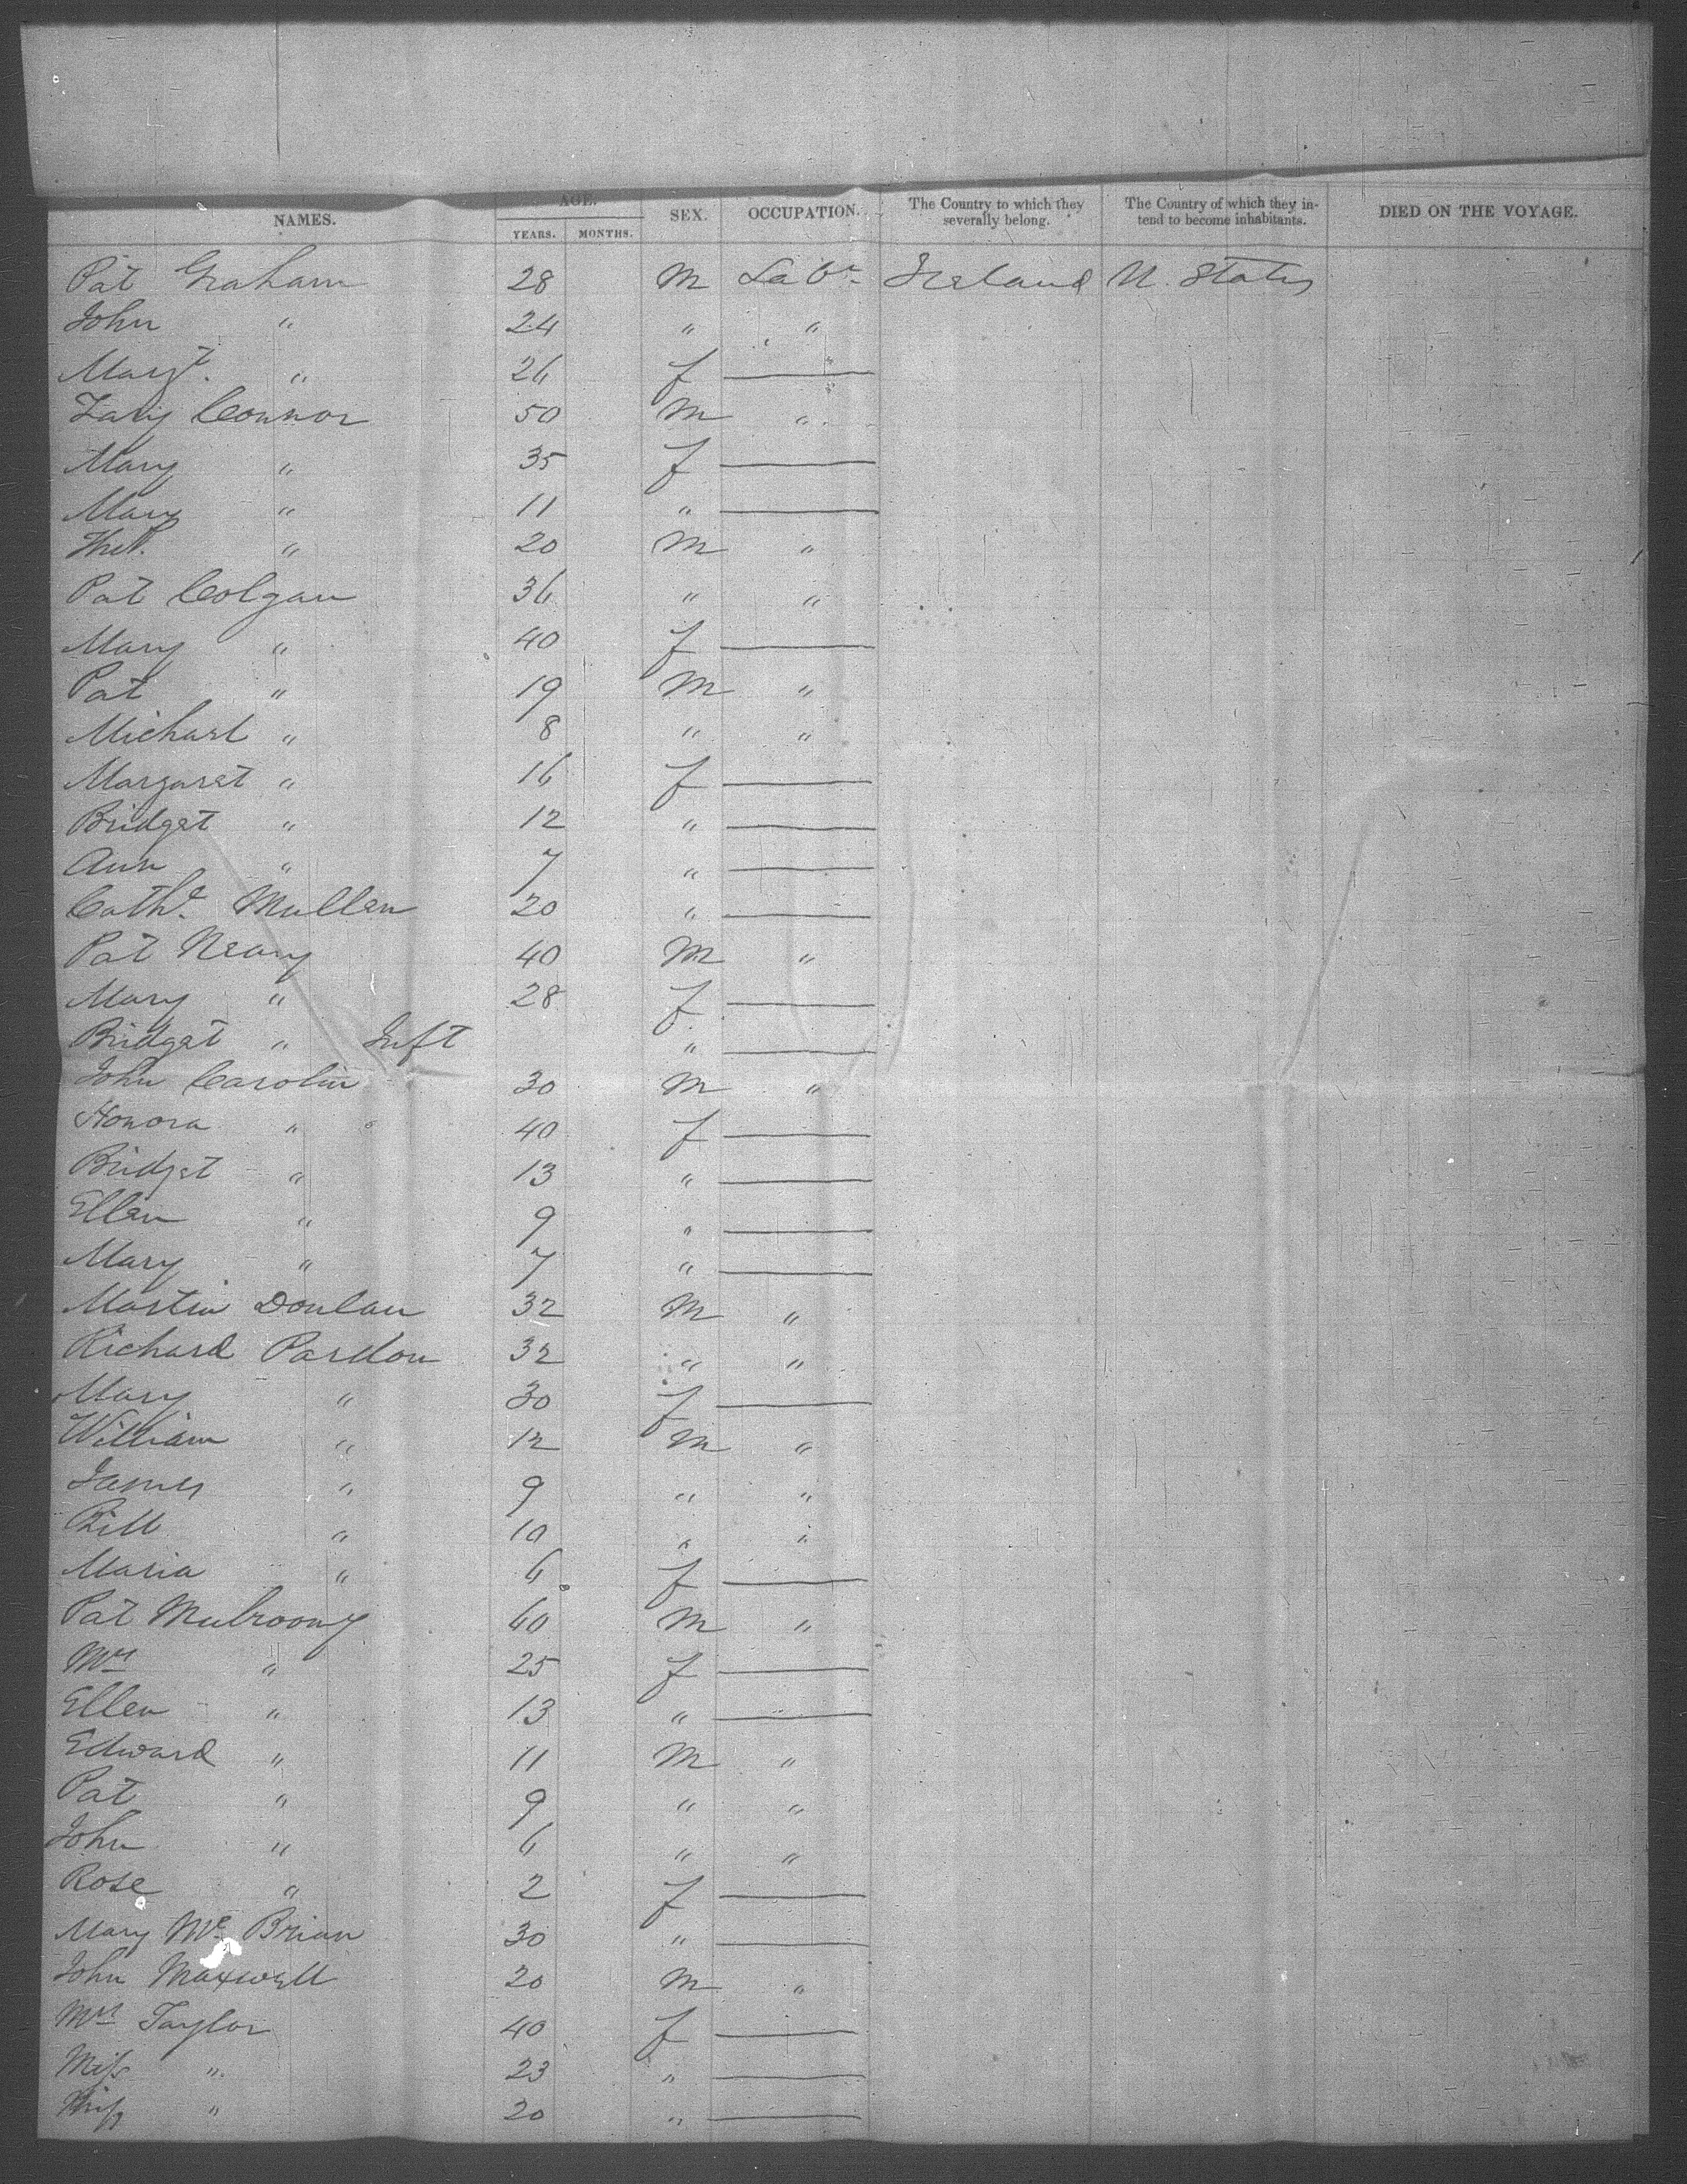 NAMES. AGE. SEX. OCCUPATION. The Country to which they severally belong. The Country of which they intend to become inhabitants. DIED ON THE VOYAGE.
YEARS. MONTHS.
Pat Graham 28 M Labr Ireland U. States
John " 24 " "
Margt. " 26 f —
Connor 50 M "
Mary " 35 f —
Mary " 11 " —
" 20 M "
Pat Colgan 36 " "
Mary " 40 f —
Pat " 19 M "
Michael " 8 " "
Margaret " 16 f —
Bridget " 12 " —
Ann " 7 " —
Cathe. Mullen 20 " —
Pat Neary 40 M "
Mary " 28 f —
Bridget " Inft " —
John Carolin 30 M "
Honora " 40 f —
Bridget " 13 " —
Ellen " 9 " —
Mary " 7 " —
Martin Donlan 32 M "
Richard Pardon 32 " "
Mary " 30 f —
William " 12 M "
James " 9 " "
Bill " 10 " "
Maria " 6 f —
Pat Mulroony 60 M "
Mrs " 25 f —
Ellen " 13 " —
Edward " 11 M "
Pat " 9 " "
John " 6 " "
Rose " 2 f —
Mary Mc Brian 30 " —
John Maxwell 20 M "
Mrs Taylor 40 f —
Miss " 23 " —
Miss " 20 " —